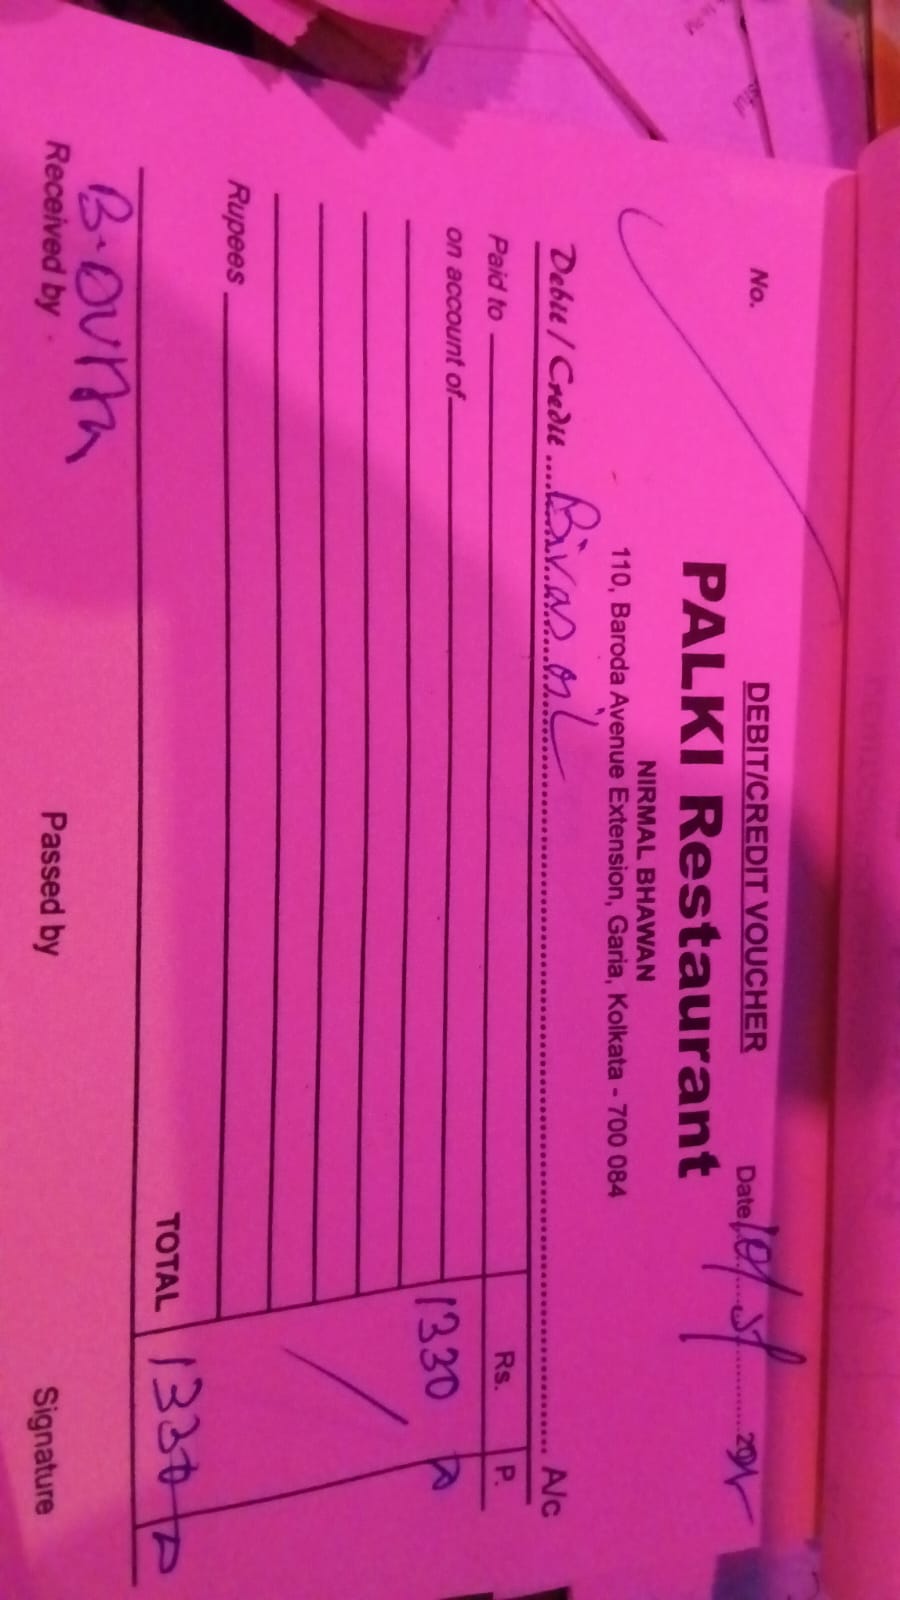 DEBIT/CREDIT VOUCHER
No. Date 10/5/ 20
PALKI Restaurant
NIRMAL BHAWAN
110, Baroda Avenue Extension, Garia, Kolkata - 700 084
Debit / Credit Bivas oil A/c
Paid to Rs. P.
on account of 1330
Rupees
TOTAL 1330
Received by Passed by Signature